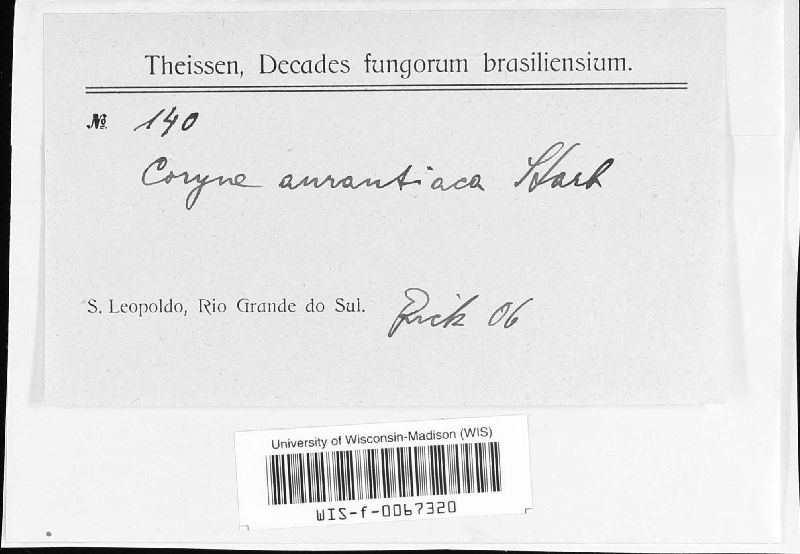 Theissen, Decades fungorum brasiliensium.
№ 140
Coryne aurantiaca Starb
S. Leopoldo, Rio Grande do Sul. Rick 06
University of Wisconsin-Madison (WIS)
WIS-f-0067320